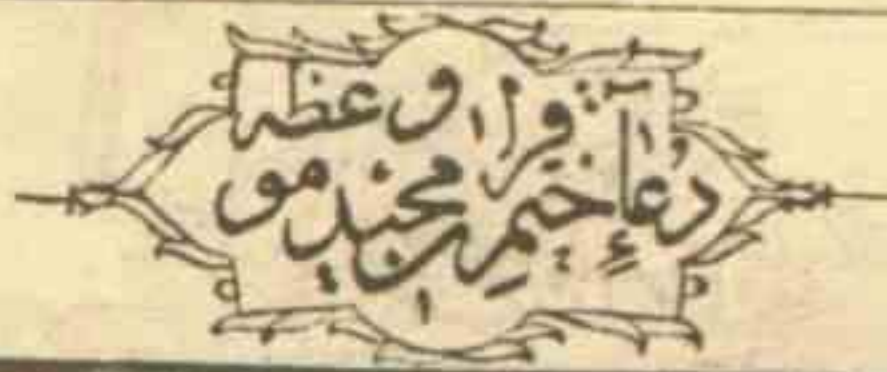 دُعآءِ ختمِ قرآن مجید و موعظه